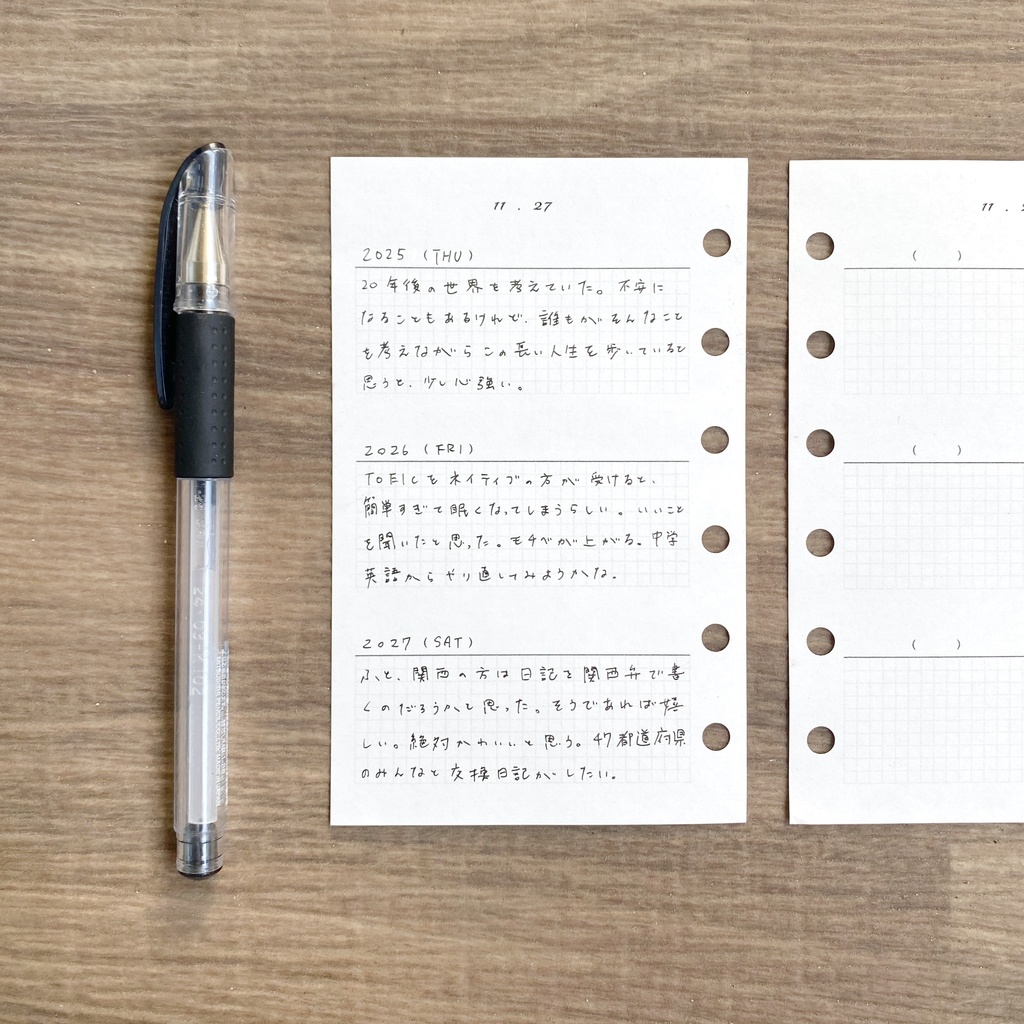 11 . 27
2025 (THU)
20年後の世界を考えていた。不安に
なることもあるけれど、誰もがそんなこと
を考えながらこの長い人生を歩いていると
思うと、少し心強い。
2026 (FRI)
TOEICをネイティブの方が受けると、
簡単すぎて眠くなってしまうらしい。いいこと
を聞いたと思った。モチベが上がる。中学
英語からやり直してみようかな。
2027 (SAT)
ふと、関西の方は日記を関西弁で書
くのだろうかと思った。そうであれば嬉
しい。絶対かわいいと思う。47都道府県
のみんなと交換日記がしたい。
11 .
( )
( )
( )